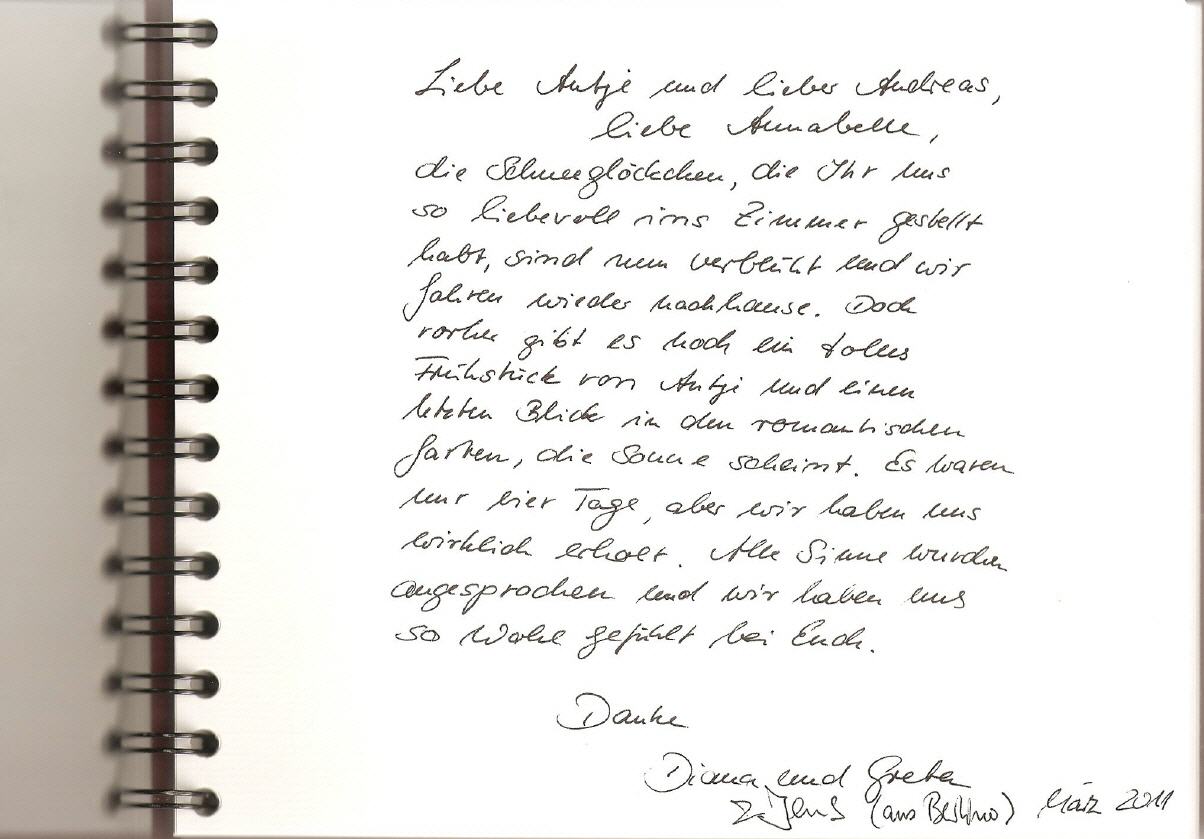 Liebe Antje und lieber Andreas,
liebe Annabelle,
die Schneeglöckchen, die Ihr uns
so liebevoll ins Zimmer gestellt
habt, sind nun verblüht und wir
fahren wieder nachhause. Doch
vorher gibt es noch ein tolles
Frühstück von Antje und einen
letzten Blick in den romantischen
Garten, die Sonne scheint. Es waren
nur vier Tage, aber wir haben uns
wirklich erholt. Alle Sinne wurden
angesprochen und wir haben uns
so Wohl gefühlt bei Euch.
Danke
Diana und Greta
Jens (aus) März 2011